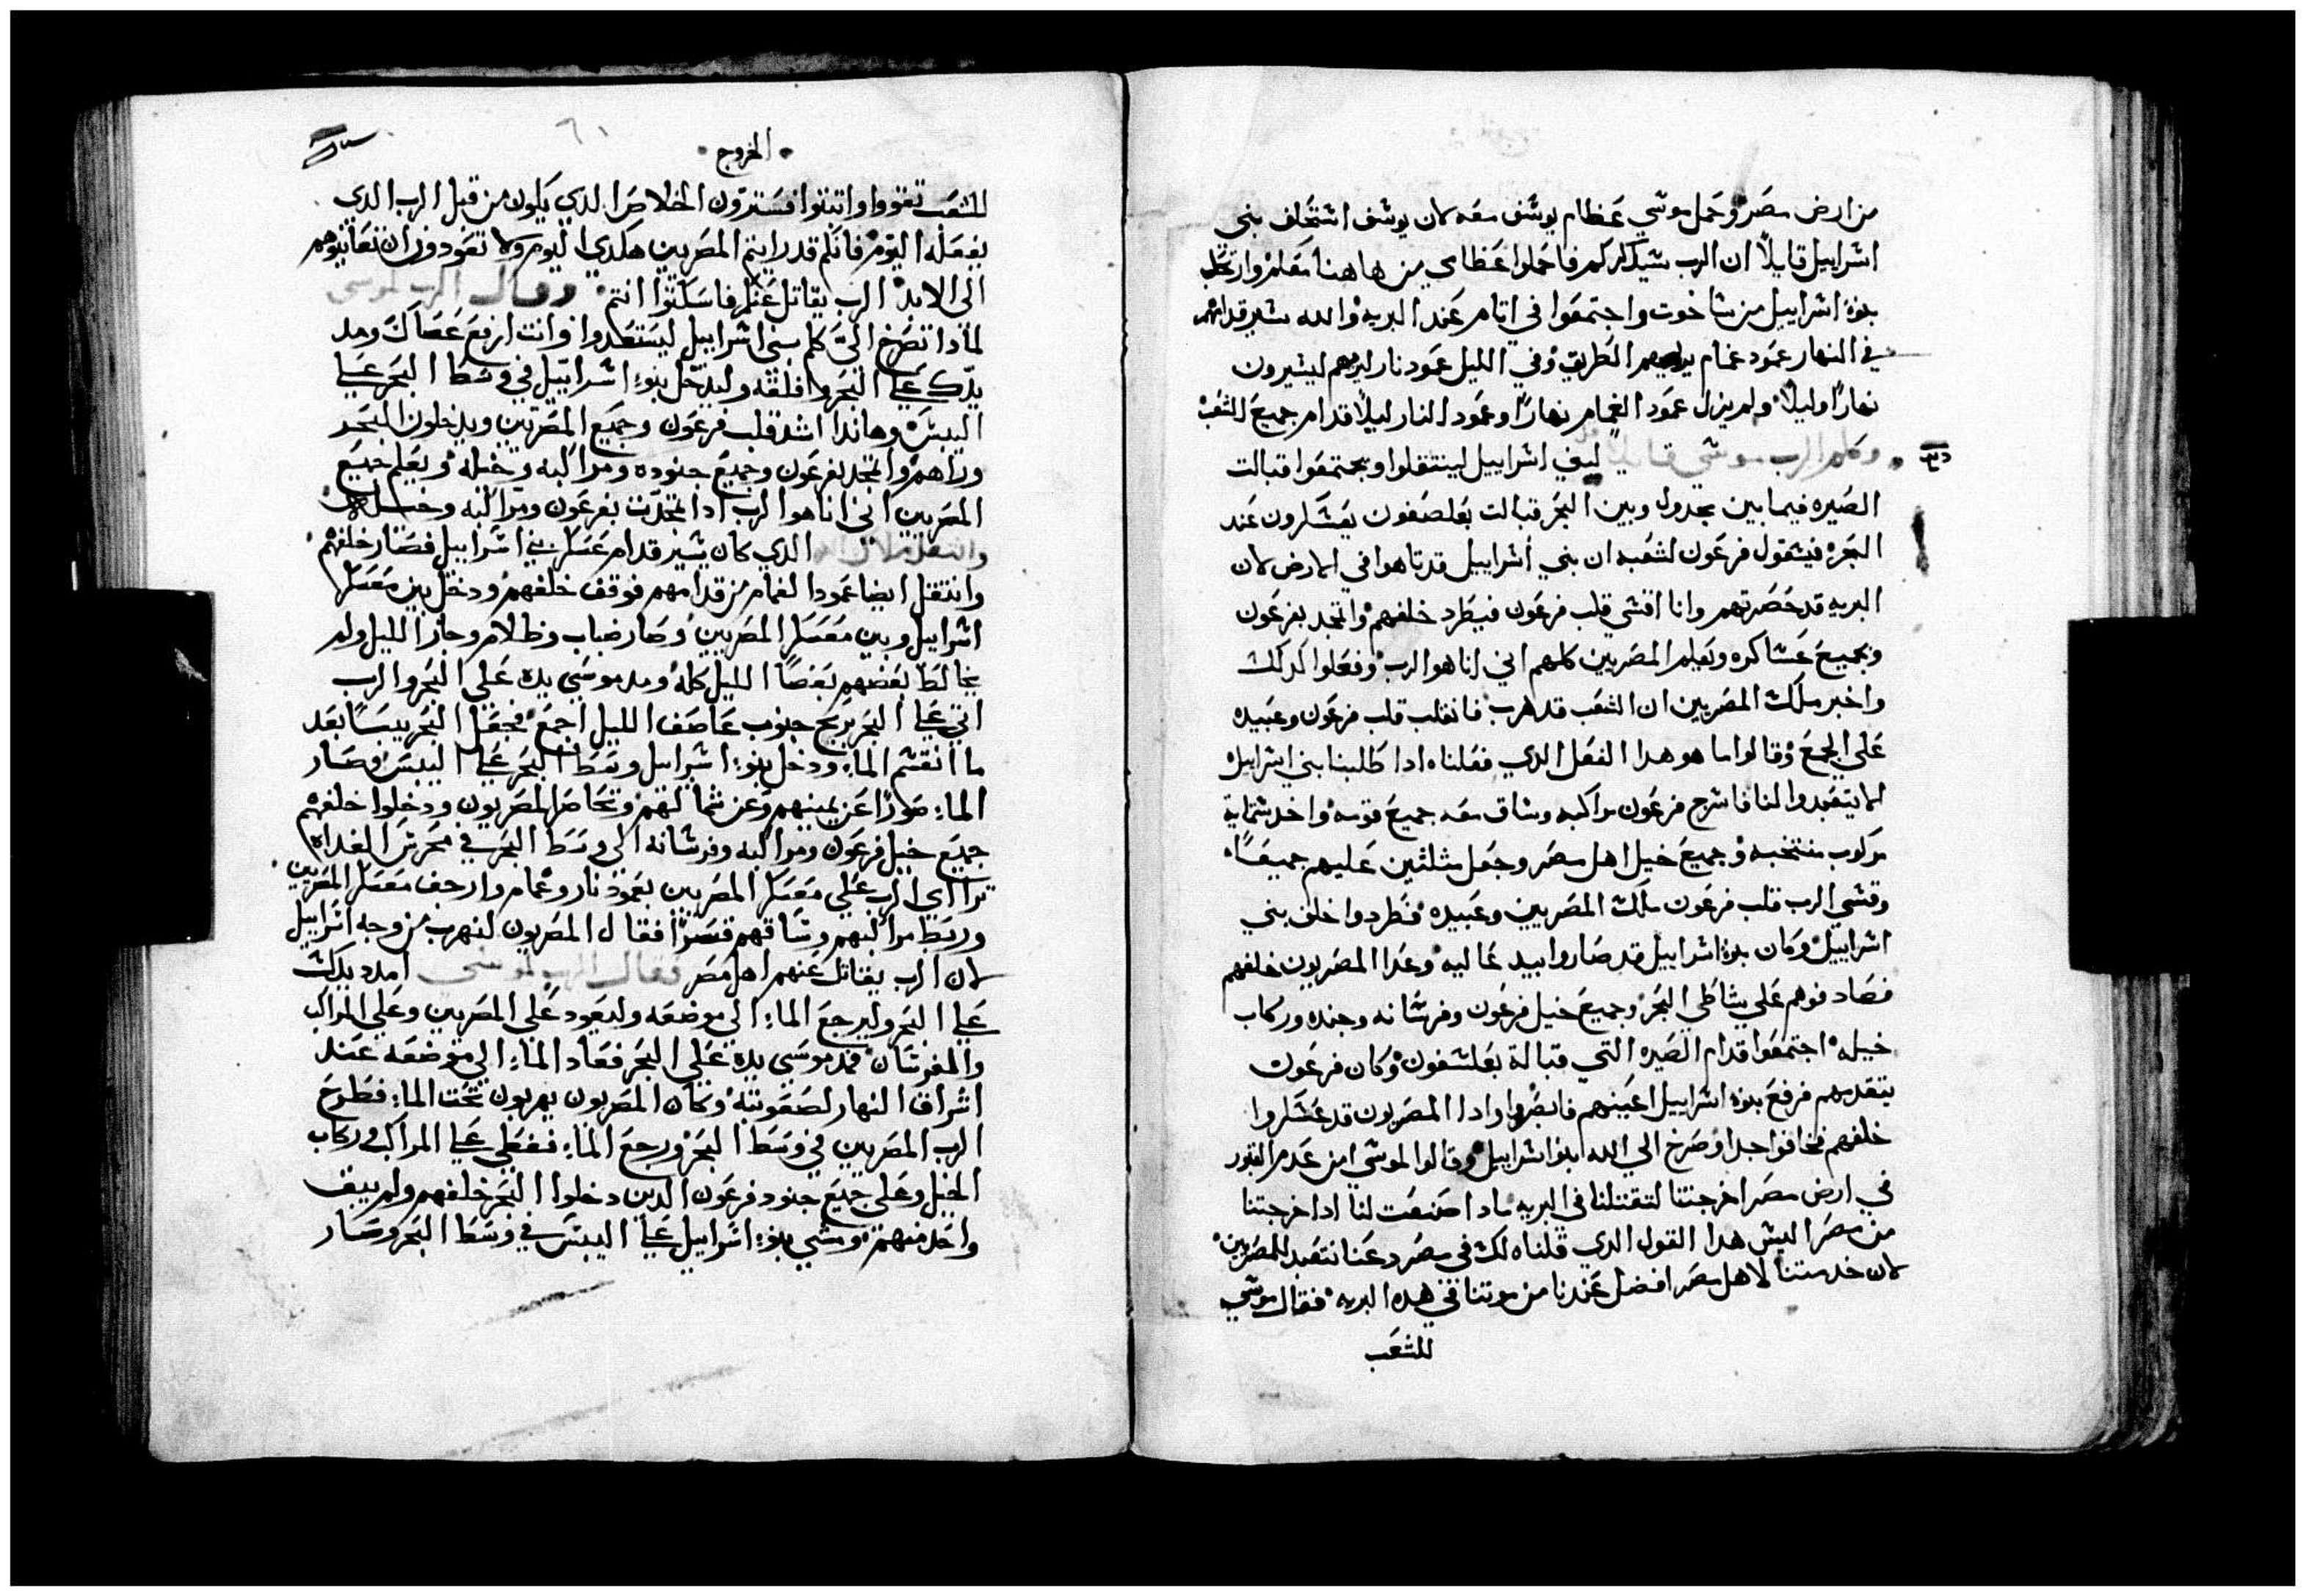 من ارض مصر وحمل موسي عظام يوسف معه لان يوسف استحلف بني
اسراييل قايلاً ان الرب سيذكركم فاحملوا عظامي من هاهنا معكم وارتحل
بنوا اسراييل من ساخوت واجتمعوا في اتام عند البريه والله يسير قدامهم
في النهار عمود غمام يريهم الطريق وفي الليل عمود نار ليريهم ليسيرون
نهاراً وليلاً ولم يزل عمود الغمام نهاراً وعمود النار ليلاً قدام جميع الشعب
وكلم الرب موسي قايلاً لبني اسراييل لينتقلوا ويجتمعوا قبالت
الصيره فيما بين مجدول وبين البحر قبالت بعلصفون يعسكرون عند
البحر فيقول فرعون لشعبه ان بني اسراييل قد تاهوا في الارض لان
البريه قد حصرتهم وانا اقسي قلب فرعون فيطرد خلفهم واتمجد بفرعون
وبجميع عساكره ويعلم المصريين كلهم اني انا هو الرب وفعلوا كدلك
واخبر ملك المصريين ان الشعب قد هرب فانقلب قلب فرعون وعبيده
علي الجمع وقالوا ما هو هدا الفعل الدي فعلناه ادا طلبنا بني اسراييل
لا يتعبدوا لنا فاسرج فرعون مراكبه وساق معه جميع قومه واخد ستماية
مركوب منتخبه وجميع خيل اهل مصر وجعل مثلثين عليهم جميعاً
وقسي الرب قلب فرعون ملك المصريين وعبيده فطردوا خلف بني
اسراييل وكان بنوا اسراييل قد صاروا بيد عاليه وعدا المصريون خلفهم
فصادفوهم علي شاطي البحر وجميع خيل فرعون وفرسانه وجنده وركاب
خيله اجتمعوا قدام الصيره التي قبالة بعلسفون وكان فرعون
يتقدمهم فرفع بنوا اسراييل اعينهم فابصروا وادا المصريون قد عسكروا
خلفهم فخافوا جدا وصرخ الي الله بنوا اسراييل وقالوا لموسي امن عدم القبور
في ارض مصر اخرجتنا لتقتلنا في البريه مادا صنعت لنا ادا خرجتنا
من مصر اليس هدا القول الدي قلناه لك في مصر دعنا نتعبد للمصريين
لان خدمتنا لاهل مصر افضل عندنا من موتنا في هده البريه فقال موسي
للشعب
الخروج
٦١
للشعب تقووا واثبتوا فسترون الخلاص الدي يكون من قبل الرب الدي
يفعله اليوم فانكم قد رايتم المصريين هكدي اليوم ولا تعودون ان تعاينوهم
الي الابد الرب يقاتل عنكم فاسكتوا انتم وقال الرب لموسي
لمادا تصرخ اليّ كلم بني اسراييل ليستعدوا وانت ارفع عصاك ومد
يدك علي البحر وافلقه وليدخل بنوا اسراييل في وسط البحر علي
اليبس وهاندا اشد قلب فرعون وجميع المصريين ويدخلون البحر
وراهم واتمجد بفرعون وجميع جنوده ومراكبه وخيله ويعلم جميع
المصريين اني انا هو الرب ادا تمجدت بفرعون ومراكبه وخيله
وانتقل ملاك الله الدي كان يسير قدام عسكر بني اسراييل فصار خلفهم
وانتقل ايضا عمود الغمام من قدامهم فوقف خلفهم ودخل بين معسكر
اسراييل وبين معسكر المصريين وصار ضباب وظلام وجاز الليل ولم
يخالط بعضهم بعضاً الليل كله ومد موسي يده علي البحر والرب
اتي علي البحر بريح جنوب عاصف الليل اجمع فجعل البحر يبساً بعد
ما انقسم الماء ودخل بنوا اسراييل وسط البحر علي اليبس وصار
الماء سوراً عن يمينهم وعن شمالهم وتحاصر المصريون ودخلوا خلفهم
جميع خيل فرعون ومراكبه وفرسانه الي وسط البحر في محرس الغداه
تراأى الرب علي معسكر المصريين بعمود نار وغمام وارجف معسكر المصريين
وربط مراكبهم وساقهم قسراً فقال المصريون لنهرب من وجه اسراييل
لان الرب يقاتل عنهم اهل مصر فقال الرب لموسي امدد يدك
علي البحر وليرجع الماء الي موضعه وليعود علي المصريين وعلي المراكب
والفرسان فمد موسي يده علي البحر فعاد الماء الي موضعه عند
اشراق النهار لصعوبته وكان المصريون يهربون تحت الماء فطرح
الرب المصريين في وسط البحر ورجع الماء فغطي علي المراكب وركاب
الخيل وعلي جميع جنود فرعون الدين دخلوا البحر خلفهم ولم يبق
واحد منهم ومشي بنوا اسراييل علي اليبس في وسط البحر وصار